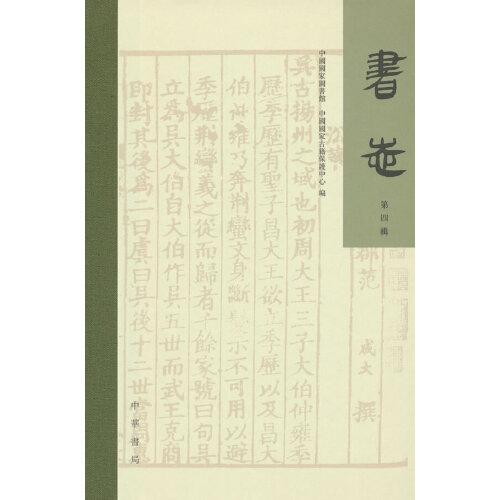 書志
第四輯
中國國家圖書館 中國國家古籍保護中心 編
郡范 成大 撰
吳古揚州之域也初周大王三子大伯仲雍季
歷季歷有聖子昌大王欲立季歷以及昌大
伯仲雍乃奔荆蠻文身斷示不可用以避
季歷荆蠻義之從而歸者千餘家號曰句吳
立爲吳大伯自大伯作吳五世而武王克商
即封其後爲二曰虞曰吳後十二世晉
中華書局